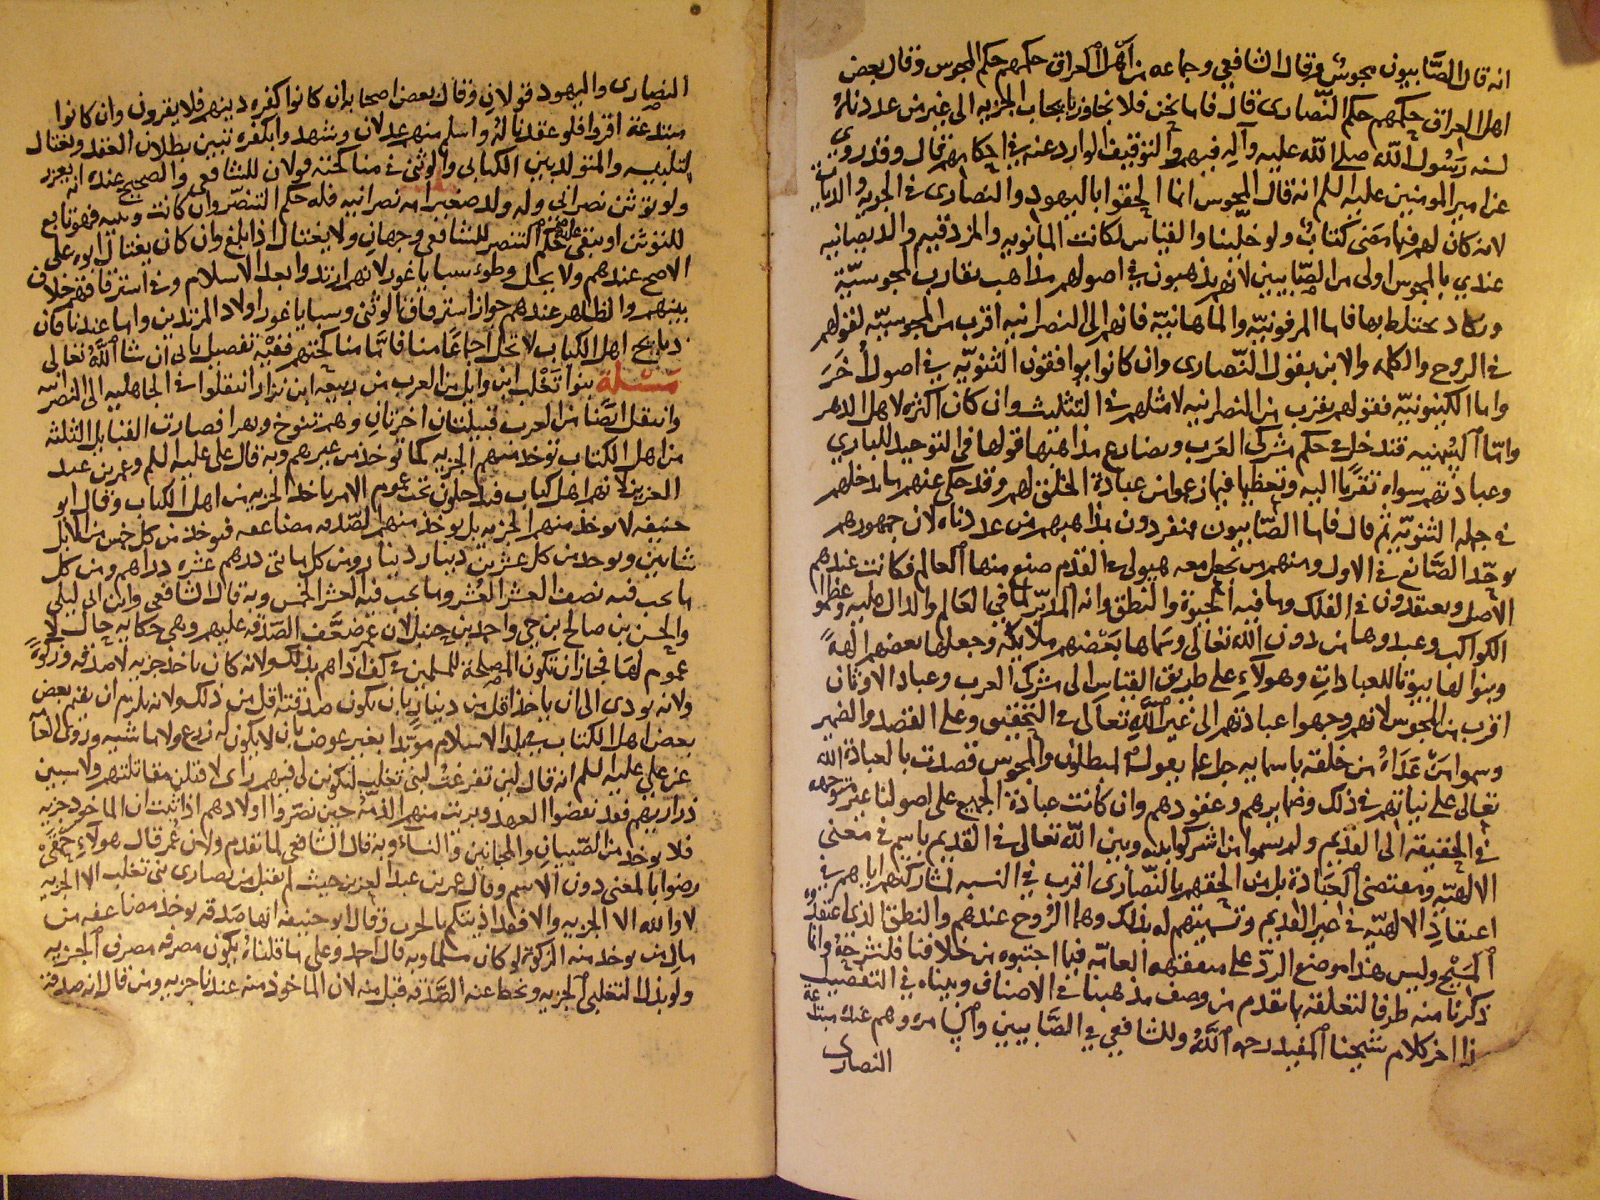 انه قال الصَّابيون مجوس وقال الشافعي وجماعه من اهل العراق حكمهم حكم المجوس وقال بعض
اهل العراق حكمهم حكم النّصارى قال فاما نحن فلا نجاوز بايجاب الجزيه الى غير من عددناهُ
لسنه رَسُول الله صلے الله عليه وآلِه فيهم والتوقيف الوارد عنه في احكامهم قال وقد روي
عن امير المومنين عليه السلم انه قال المجوس انما الحقوا باليهود والنصارى في الجزيه والديات
لانه كان لهم فيما مضى كتابٌ ولو خلّينا والقياس لكانت المانويه والمزدقيه والديصانيه
عندي بالمجوس اولى من الصّابيين لانهم يذهبون في اصولهم مذاهب تقارب المجوسيّة
وتكاد تختلط بها فاما المرقونيّه والماهانيّه فانهم الى النصرانيه اقرب من المجوسيّه لقولهم
في الروح والكلمه والابن بقول النّصارى وان كانوا يوافقون الثنويّه في اصول أُخَرَ
واما الكينونيّه فقولهم يقرب من النصرانيه لاصلهم في التثليث وان كان اكثره لاهل الدهر
وامّا السمنيه فتدخل في حكم مشركي العَرب وتضارع مذاهبها قولها في التوحيد للباري
وعبادتهم سواه تقرّبًا اليه وتعظيما فيما زعموا من عبادة الخلق لهم وقد حكي عنهم ما يدخلهم
في جمله الثنويّه ثم قال فاما الصّابيون منفردون بمذاهبهم ممن عددناه لان جمهورهم
يوحّد الصَّانع في الاول ومنهم من يجعل معه هيولى في القدم صنع منها العالم فكانت عندهم
الاصل ويعتقدون في الفلك وما فيه الحيوة والنطق وانه المدبّر لما في العالم والدال عليه وعظموا
الكواكب وعبدوها من دون الله تعالى وسماها بعضهم ملايكه وجعلها بعضهم الهةً
وبنوا لها بيوتا للعبادات وهولآءِ على طريق القياس الى مشركي العرب وعباد الاوثان
اقرب من المجوس لانهم وجهوا عبادتهم الى غير الله تعالى في التحقيق وعلى القصد والضمير
وسموا مَنْ عَدَاهُ من خلقه باسمايه جل عما يقول المبطلون والمجوس قصدت بالعبادة الله
تعالى على نياتهم في ذلك وضمايرهم وعقودهم وان كانت عبادة الجميع على اصولنا غير متوجهه
في الحقيقه الى القديم ولم يسموا من اشركوا بينه وبين الله تعالى في القديم باسم في معنى
الالهيّه ومقتضى العبادة بل من الحقهم بالنّصارى اقرب في النسبه لمشاركتهم اياهم في
اعتقاد الالهيّه في غير القديم وتسميتهم له بذلك وهما الرُّوح عندهم والنطق الذي اعتقدوه
المسيح وليس هذا موضع الردّ على متفقهه العامّه فيما اجتبوه من خلافنا فلنشرحهُ وانما
ذكرنا منه طرفا لتعلقه بما تقدم من وصف مذهبنا في الاصناف وبيناه في التفصيل
ذا اخر كلام شيخنا المفيد رحمه اللَّهُ وللشافعي في الصَّابيين والسامره وهم عنده مبتدعة
النصارى
النصارى واليهود قولان وقال بعض اصحابه ان كانوا كفره دينهم فلا يقرون وان كانوا
مبتدعة اقروا فلو عقدنا لهُ واسلم منهم عدلان وشهدوا بكفره تبين بطلان العقد ويغتال
لتلبيسه والمتولد بين الكتابي والوثني في مناكحته قولان للشافعي والصحيح عنده انه يعزر
ولو توثن نصراني وله ولد صغير امه نصرانيه فله حكم التنصّر وان كانت وثنيه فهو تابع
للتوثن او يبقى عليه حكم التنصر للشافعي وجهان ولا يغتال اذا بلغ وان كان يغتال ابوه على
الاصح عندهم ولا يحل وطوء سبايا غور لانهم ارتدوا بعد الاسلام وفي استرقاقهم خلاف
بينهم والظاهر عندهم جواز استرقاق الوثني وسبايا غور اولاد المرتدين واما عندنا فان
ذبايح اهل الكتاب لا تحل اجماعًا منا فامّا مناكحتهم ففيه تفصيل ياتي ان شا اللَّهُ تعالى
مسْئلة بنوا تَغْلب ابن وايل من العرب من ربيعه ابن نزار انتقلوا في الجاهليه الى النصرانيه
وانتقل ايضًا من العرب قبيلتان اخرتان وهم تنوخ وبهرا فصارت القبايل الثلثة
من اهل الكتاب توخذ منهم الجزيه كما توخذ من غيرهم وبه قال علي عليه السلم وعمر بن عبد
العزيز لانهم اهل كتاب فيدخلون تحت عموم الامر باخذ الجزيه من اهل الكتاب وقال ابو
حنيفه لا يوخذ منهم الجزيه بل يوخذ منهم الصّدقه مضاعفه فيوخذ من كل خمس من الابل
شاتين ويوخذ من كل عشرين دينار دينار ومن كل مائتي درهم عشره دراهم ومن كل
ما يجب فيه نصف العشر العُشر وما يجب فيه العشر الخمس وبه قال الشافعي وابن ابي ليلى
والحسن بن صالح بن حي واحمد بن حنبل لان عمر ضعَّف الصَدقه عليهم وهي حكايه حال لا
عموم لها فجاز ان تكون المصلحة للمسلمين في كف اذاهم بذلك ولانه كان ياخذ جزيه لا صدقه وزكوةً
ولانه يودي الى ان ياخذ اقل من دينار بان يكون صدقته اقل من ذلك ولانه يلزم ان يقيم بعض
بعض اهل الكتاب في بلد الاسلام مويدا بغير عوض بان لا يكون له زرع ولا ماشيه وروى العامّة
عن علي عليه السلم انه قال لين تفرغتُ لبني تغلب ليكونن لي فيهم راى لاقتلن مقاتلتهم ولاسبين
ذراريهم فقد نقضوا العهد وبريت منهم الذمّه حين نصروا اولادهم اذا ثبت ان الماخوذ جزيه
فلا يوخذ من الصّبيان والمجانين والنساء وبه قال الشافعي لما تقدم ولان عُمر قال هولآءِ حمقى
رضوا بالمعنى دون الاسم وقال عمر بن عبد العزيز حيث لم يقبل من نصارى بني تغلب الا الجزيه
لا والله الا الجزيه والا فقد اذنتكم بالحرب وقال ابو حنيفه انها صَدقه يوخذ مضاعفه من
مال من يوخذ منه الزكوة لو كان مسلما وبه قال احمد وعلى ما قلناهُ يكون مصرفه مصرف الجزيه
ولو بذل التغلبي الجزيه ويحط عنه الصَّدقه قبل منه لان الماخوذ منه عندنا جزيه ومن قال انه صدقة